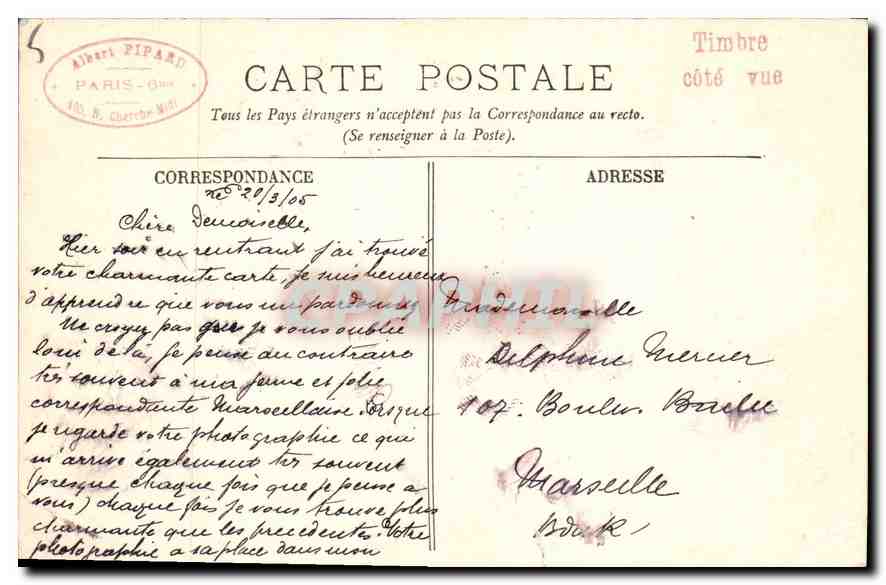 5
Albert PIPARD
PARIS-6me
105, R. Cherche-Midi
Timbre
côté vue
CARTE POSTALE
Tous les Pays étrangers n'acceptent pas la Correspondance au recto.
(Se renseigner à la Poste).
CORRESPONDANCE
20/3/05
Chère Demoiselle,
Hier soir en rentrant j'ai trouvé
votre charmante carte, je suis heureux
d'apprendre que vous me pardonnez
Ne croyez pas que je vous oublie
loin de là, je pense au contraire
très souvent à ma jeune et jolie
correspondante Marseillaise. Lorsque
je regarde votre photographie ce qui
m'arrive également très souvent
(presque chaque fois que je pense a
vous) chaque fois je vous trouve plus
charmante que les precedentes. Votre
photographie a sa place dans mon
ADRESSE
Mademoiselle
Delphine Mercier
107. Boulev.
Marseille
BduR